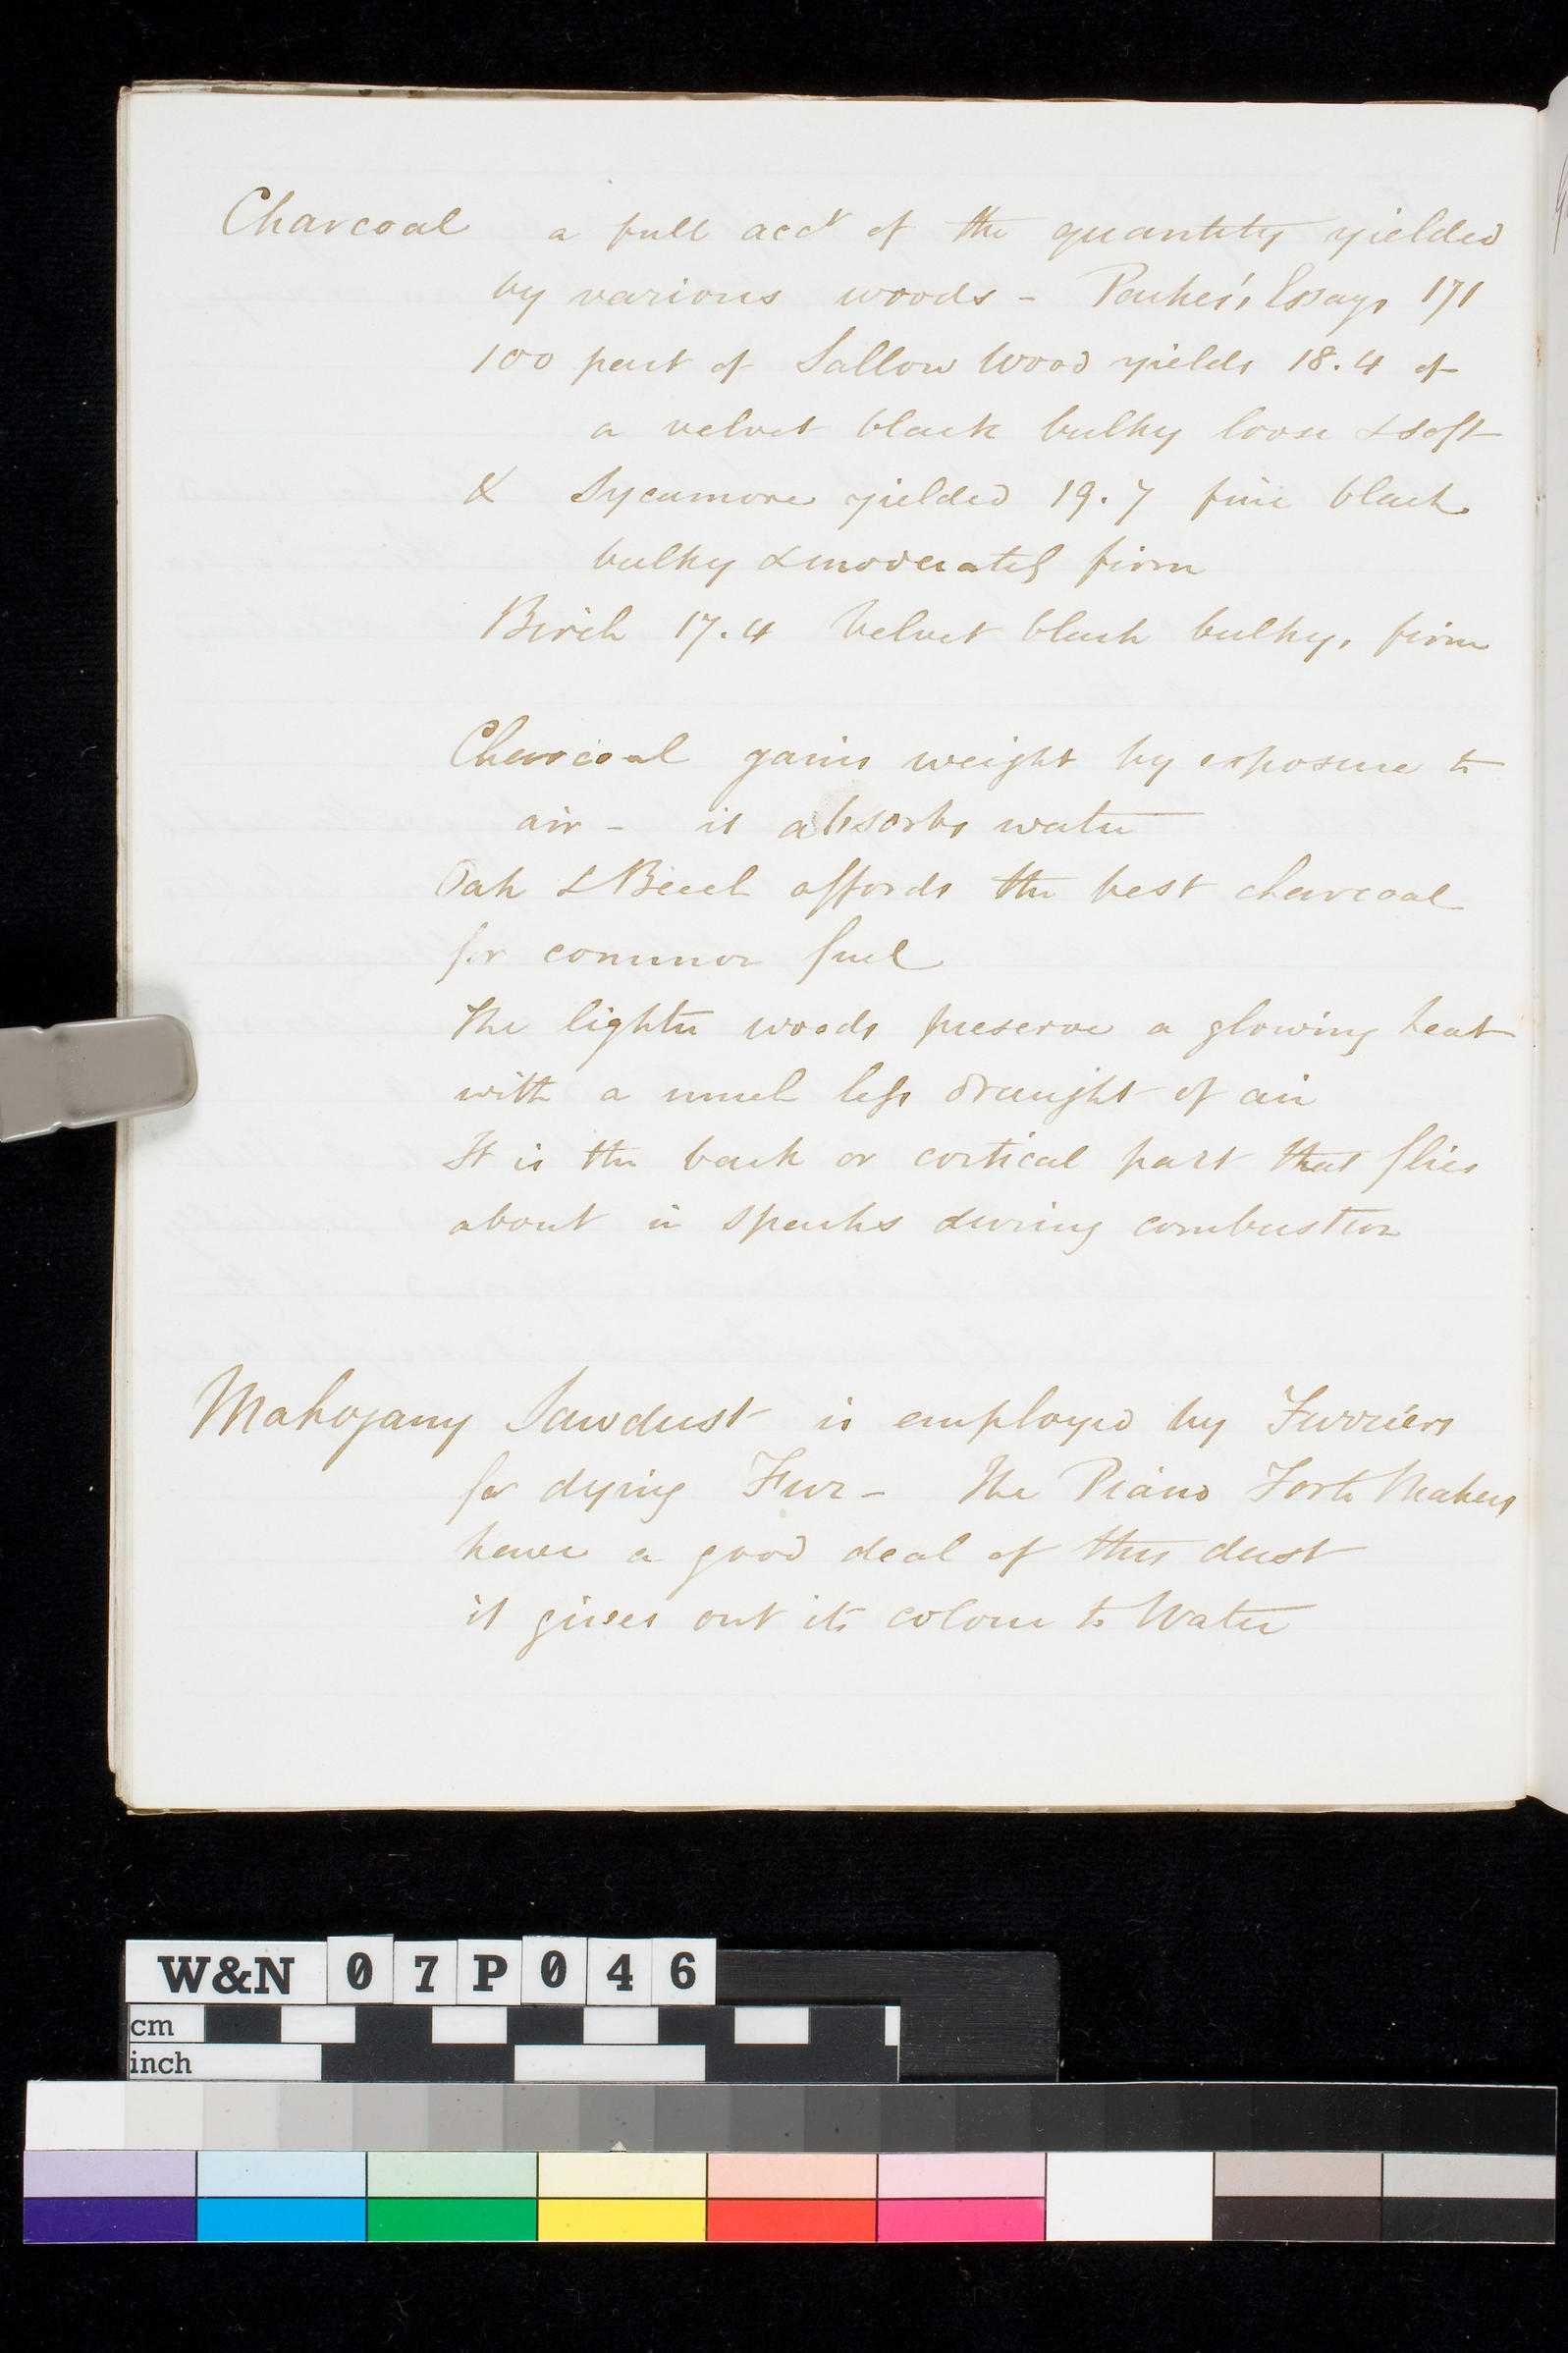 Charcoal a full acct of the quantity yielded
by various woods - Parkes's Essays 171
100 part of Sallow Wood yields 18.4 of
a velvet black bulky loose & soft
& Sycamore yielded 19.7 fine black
bulky & moderately firm
Birch 17.4 Velvet black bulky, firm
Charcoal gains weight by exposure to
air - it absorbs water
Oak & Beech affords the best charcoal
for common fuel
The lighter woods preserve a glowing heat
with a much less draught of air
It is the bark or cortical part that flies
about in sparks during combustion
Mahogany Sawdust is employed by Furriers
for dying Fur - The Piano Forte Makers
have a good deal of this dust
it gives out its colour to Water
W&N 07P046
cm
inch